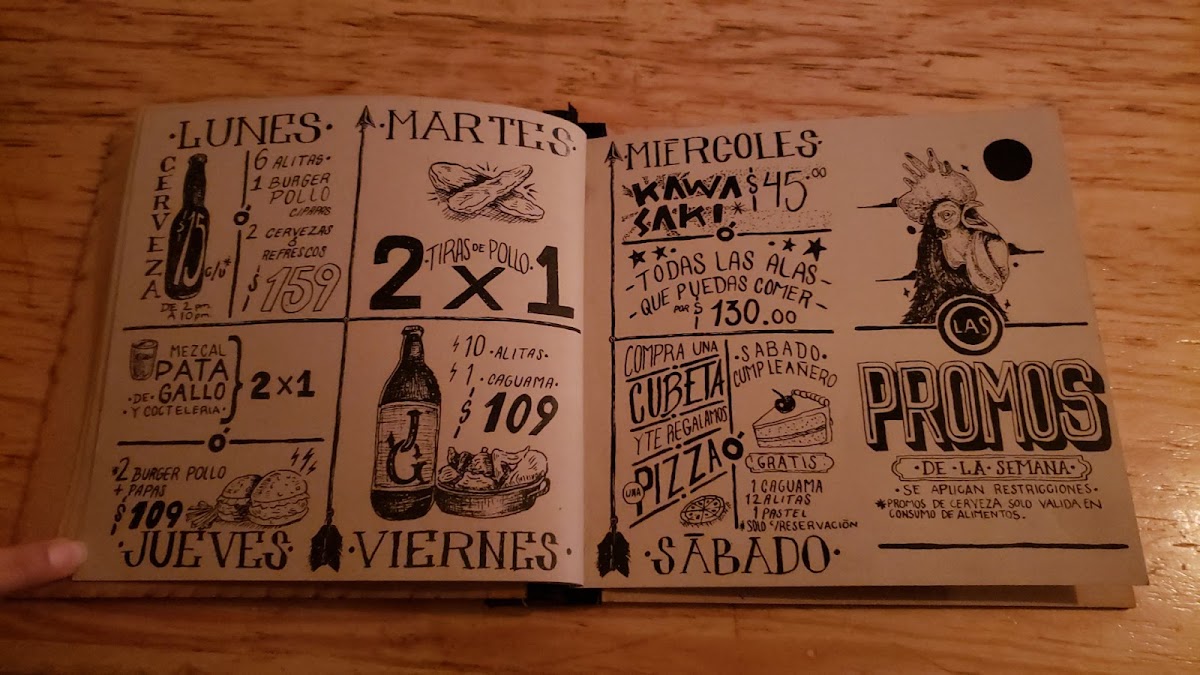 ·LUNES·
CERVEZA
$15
c/u*
DE 2 pm
A 10 pm
6 ALITAS
1 BURGER
POLLO
C/PAPAS
2 CERVEZAS
Ó
REFRESCOS
$159
·MARTES·
TIRAS DE POLLO
2x1
MEZCAL
PATA
DE GALLO
Y COCTELERIA
2x1
Ó
*2 BURGER POLLO
+ PAPAS
$109
JUEVES·
10 ·ALITAS·
1 ·CAGUAMA·
$109
JG
·VIERNES·
·MIÉRCOLES·
KAWA
SAKI*
$45.00
Ó
-TODAS LAS ALAS-
-QUE PUEDAS COMER-
POR $130.00
COMPRA UNA
CUBETA
Y TE REGALAMOS
UNA PIZZA
Ó
·SABADO·
CUMPLEAÑERO
GRATIS
1 CAGUAMA
12 ALITAS
1 PASTEL
*SOLO C/RESERVACIÓN
·SÁBADO·
LAS
PROMOS
·DE·LA·SEMANA·
·SE APLICAN RESTRICCIONES·
*PROMOS DE CERVEZA SOLO VALIDA EN
CONSUMO DE ALIMENTOS.